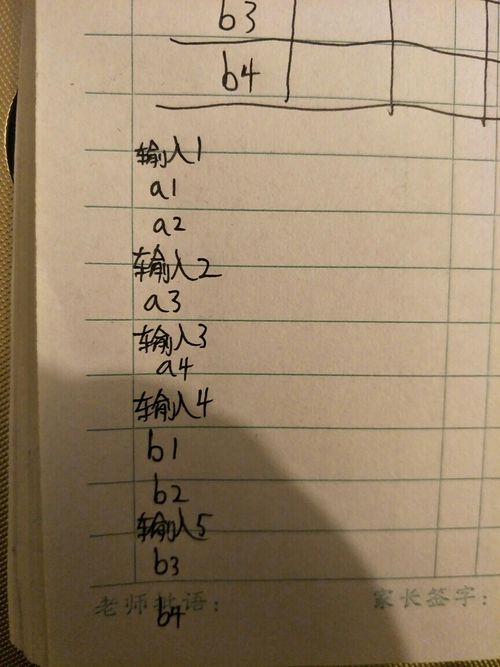 b3
b4
输入1
a1
a2
输入2
a3
输入3
a4
输入4
b1
b2
输入5
b3
老师批语： 家长签字：
b4